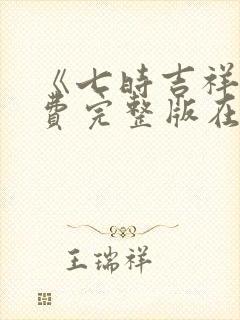 《七时吉祥
费完整版在
王瑞祥